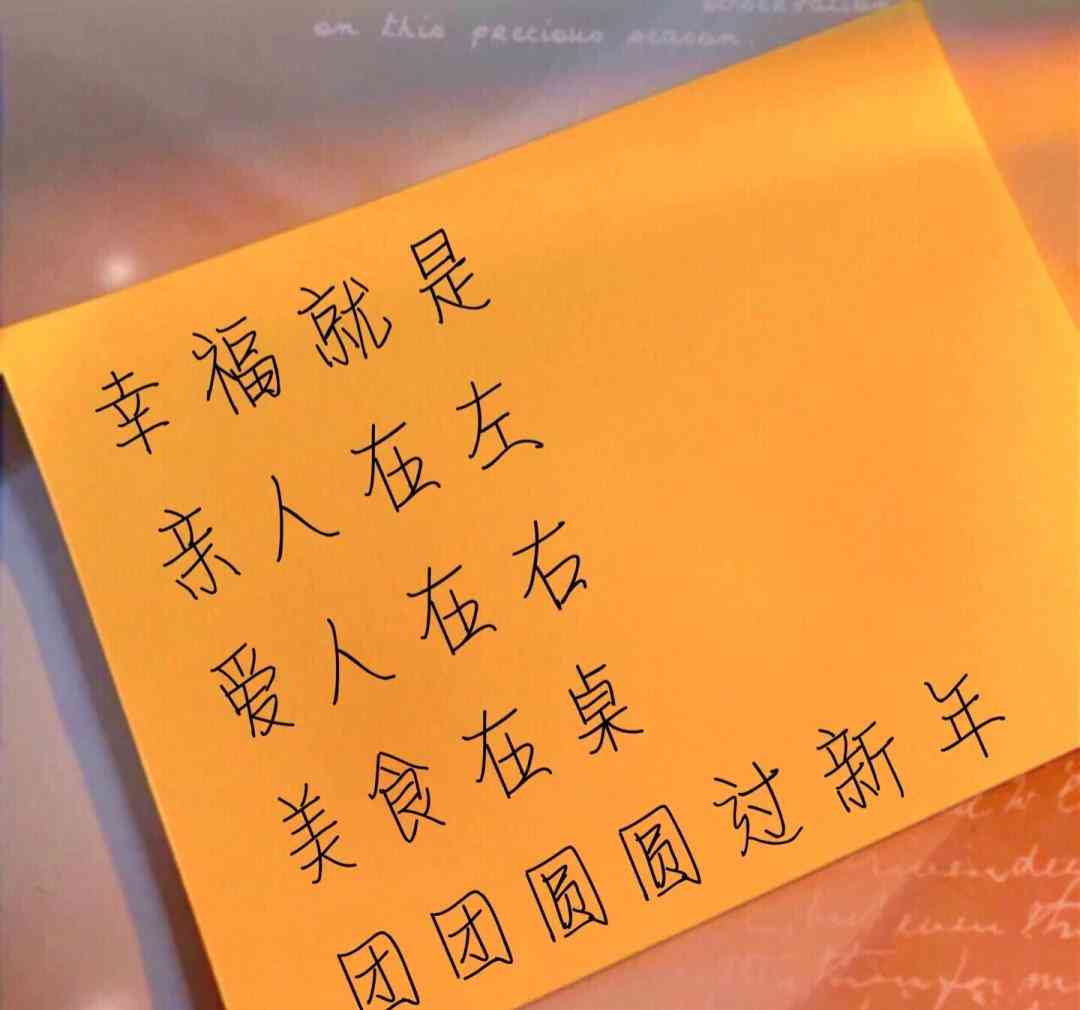 on this precious season.
幸福就是
亲人在左
爱人在右
美食在桌
团团圆圆过新年